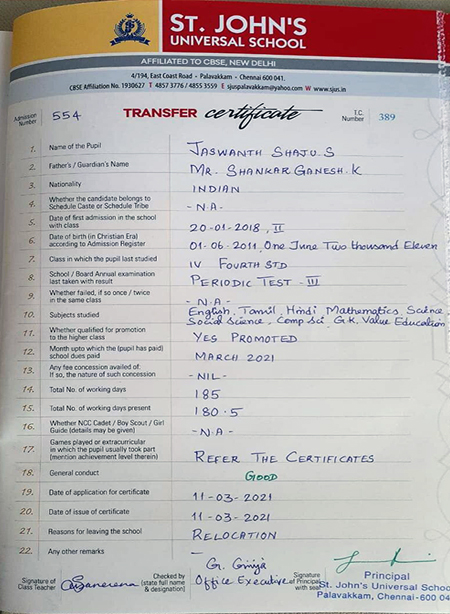 ST. JOHN'S
UNIVERSAL SCHOOL
AFFILIATED TO CBSE, NEW DELHI
4/194, East Coast Road - Palavakkam - Chennai 600 041.
CBSE Affiliation No. 1930627 T 4857 3776 / 4855 3559 E sjuspalavakkam@yahoo.com W www.sjus.in
Admission Number 554 TRANSFER certificate T.C. Number 389
1. Name of the Pupil JASWANTH SHAJU.S
2. Father's / Guardian's Name MR. SHANKAR GANESH.K
3. Nationality INDIAN
4. Whether the candidate belongs to
Schedule Caste or Schedule Tribe -N.A-
5. Date of first admission in the school
with class 20-01-2018, II
6. Date of birth (in Christian Era)
according to Admission Register 01.06-2011, One June Two thousand Eleven
7. Class in which the pupil last studied IV FOURTH STD
8. School / Board Annual examination
last taken with result PERIODIC TEST - III
9. Whether failed, if so once / twice
in the same class -N.A-
10. Subjects studied English, Tamil, Hindi Mathematics, Science,
Social Science, Comp Sci, G.K, Value Education
11. Whether qualified for promotion
to the higher class YES PROMOTED
12. Month upto which the (pupil has paid)
school dues paid MARCH 2021
13. Any fee concession availed of.
If so, the nature of such concession -NIL-
14. Total No. of working days 185
15. Total No. of working days present 180.5
16. Whether NCC Cadet / Boy Scout / Girl
Guide (details may be given) -N.A-
17. Games played or extracurricular
in which the pupil usually took part
(mention achievement level therein) REFER THE CERTIFICATES
18. General conduct GOOD
19. Date of application for certificate 11-03-2021
20. Date of issue of certificate 11-03-2021
21. Reasons for leaving the school RELOCATION
22. Any other remarks -
Signature of
Class Teacher
Checked by
(state full name
& designation)
Office Executive
Signature
of Principal
with seal
Principal
St. John's Universal School
Palavakkam, Chennai-600 04